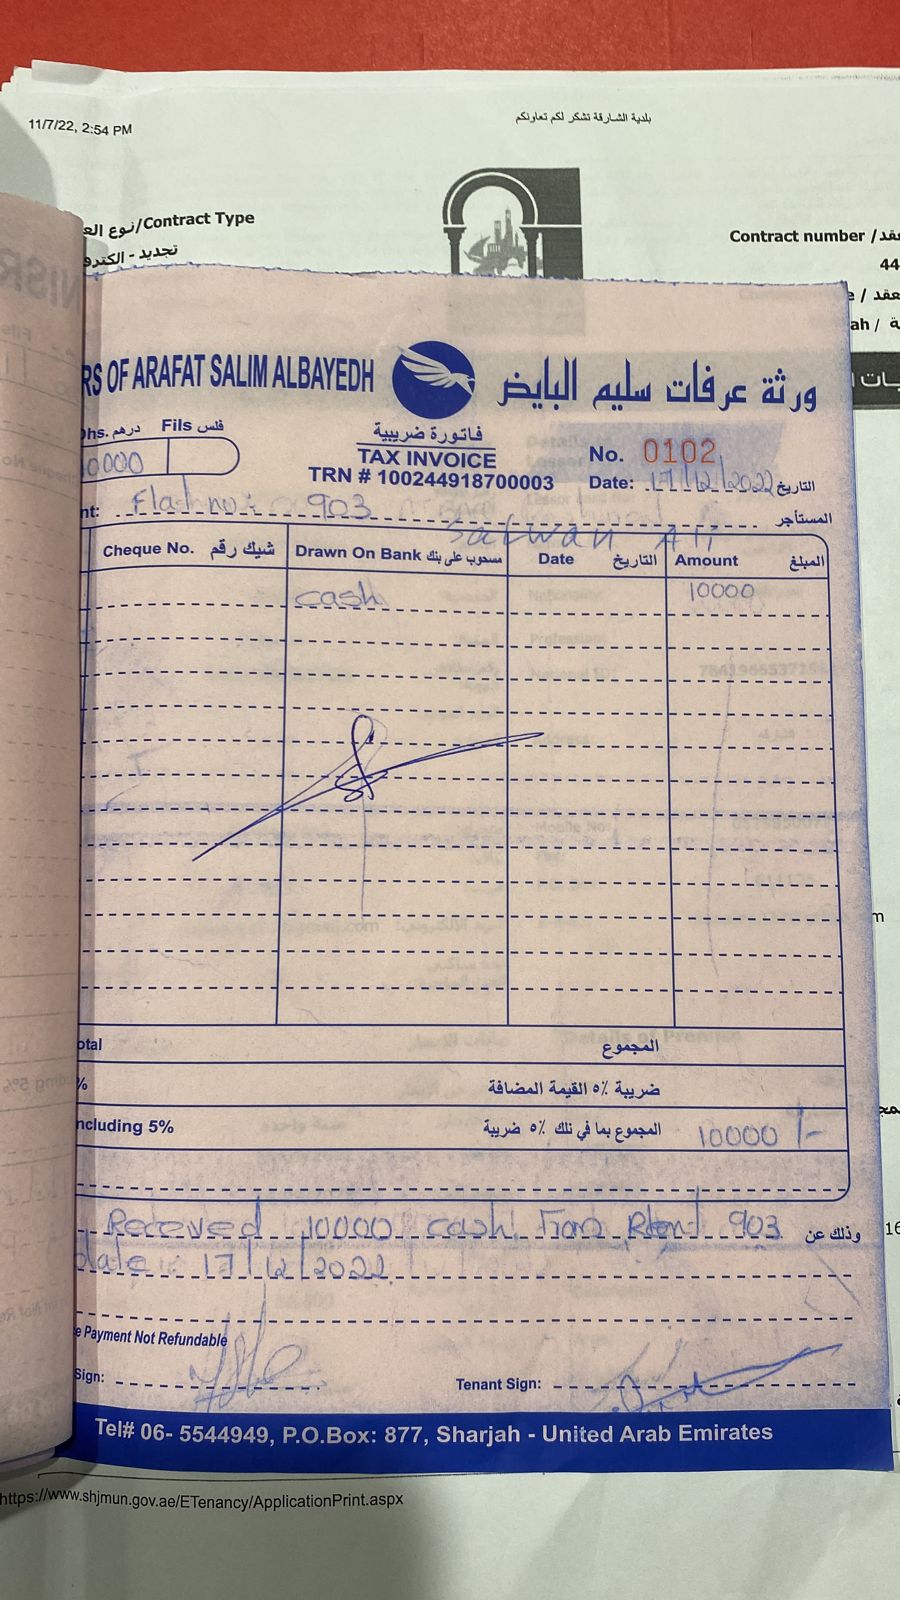 11/7/22, 2:54 PM
بلدية الشارقة تشكر لكم تعاونكم
نوع الع/Contract Type
تجديد - الكترو
Contract number /
44
ah /
RS OF ARAFAT SALIM ALBAYEDH
ورثة عرفات سليم البايض
Dhs. درهم Fils فلس
0000
فاتورة ضريبية
TAX INVOICE
TRN # 100244918700003
No. 0102
Date: 17/12/2022 التاريخ
nt: Flat no: 903 المستأجر
Safwan Ali
Cheque No. شيك رقم Drawn On Bank مسحوب على بنك Date التاريخ Amount المبلغ
cash 10000
otal المجموع
% ضريبة ٥٪ القيمة المضافة
ncluding 5% المجموع بما في ذلك ٥٪ ضريبة 10000/-
Receved 10000 cash From Rent 903 وذلك عن
date : 17/12/2022
e Payment Not Refundable
Sign:
Tenant Sign:
Tel# 06- 5544949, P.O.Box: 877, Sharjah - United Arab Emirates
https://www.shjmun.gov.ae/ETenancy/ApplicationPrint.aspx